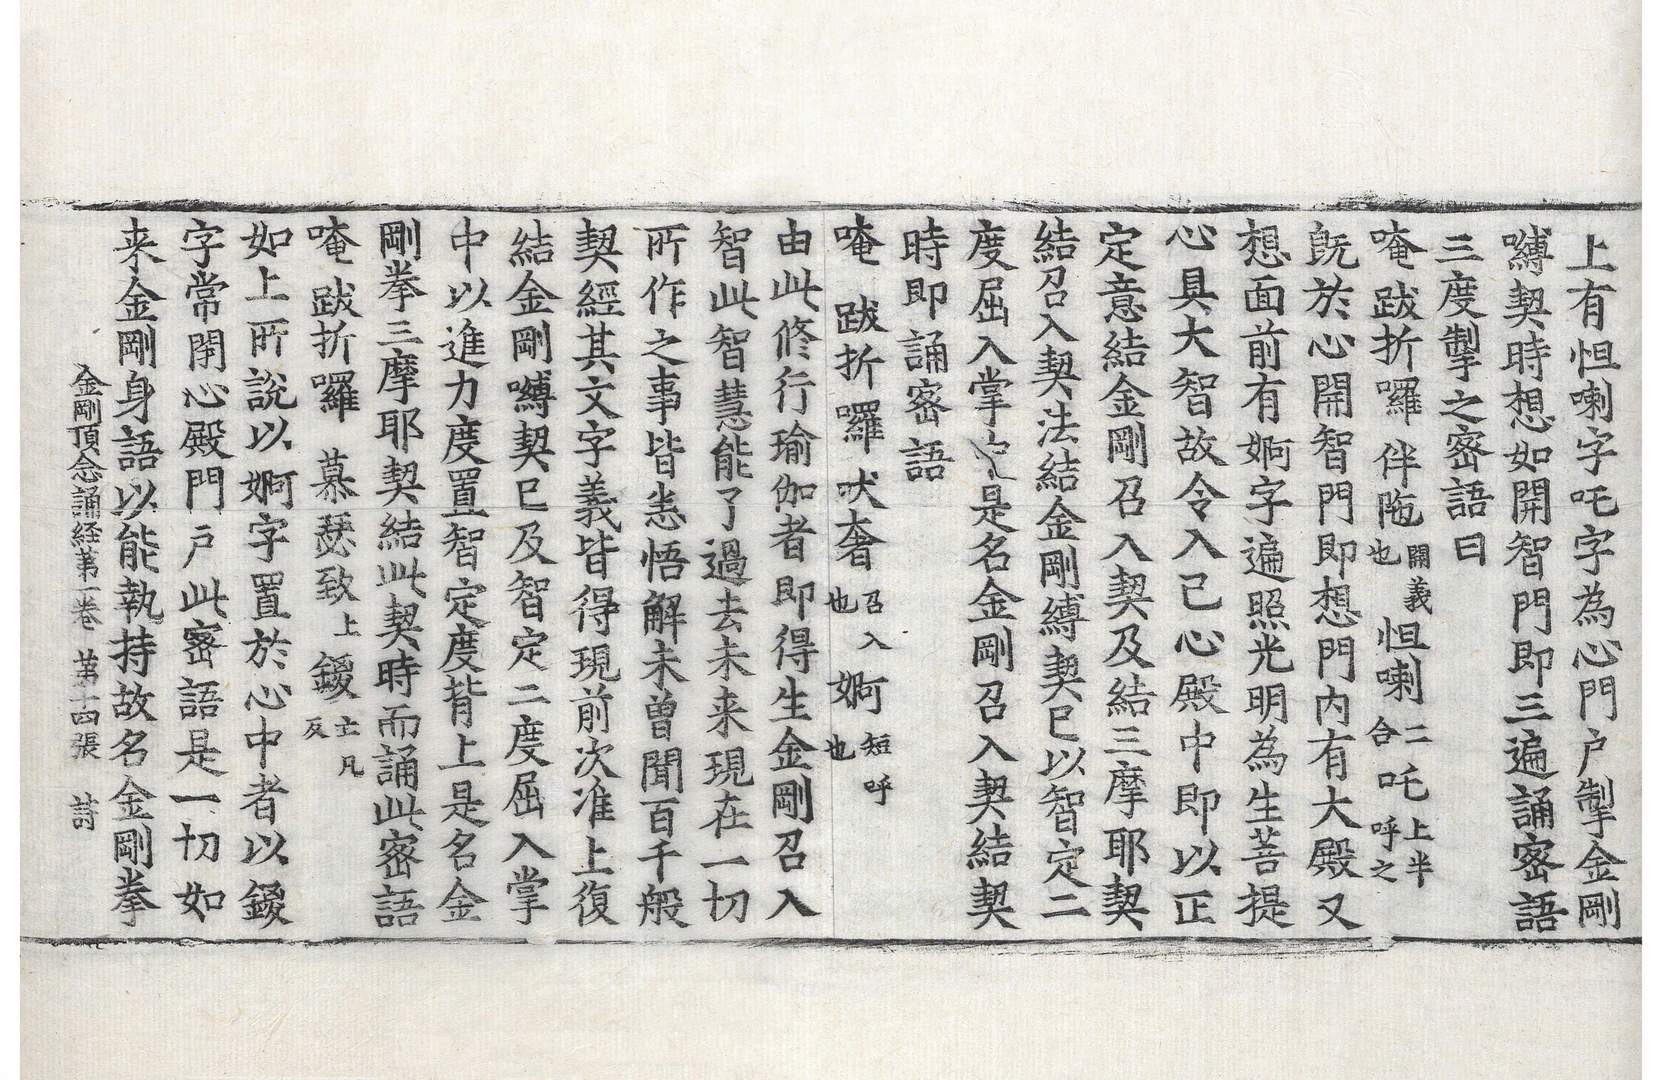 上有怛喇字吒字為心門户掣金剛
縛契時想如開智門即三遍誦密語
三度掣之密語曰
唵 跋折囉 伴陁開義也 怛喇二合 吒上半呼之
旣於心開智門即想門内有大殿又
想面前有婀字遍照光明為生菩提
心具大智故令入己心殿中即以正
定意結金剛召入契及結三摩耶契
結召入契法結金剛縛契已以智定二
度屈入掌是名金剛召入契結契
時即誦密語
唵 跋折囉 吠奢召入也 婀短呼也
由此修行瑜伽者即得生金剛召入
智此智慧能了過去未来現在一切
所作之事皆悉悟解未曽聞百千般
契經其文字義皆得現前次准上復
結金剛縛契已及智定二度屈入掌
中以進力度置智定度背上是名金
剛拳三摩耶契結此契時而誦此密語
唵 跋折囉 慕瑟致上 鑁亡凡反
如上所說以婀字置於心中者以鑁
字常閇心殿門户此密語是一切如
来金剛身語以能執持故名金剛拳
金剛頂念誦経苐一卷 苐十四張